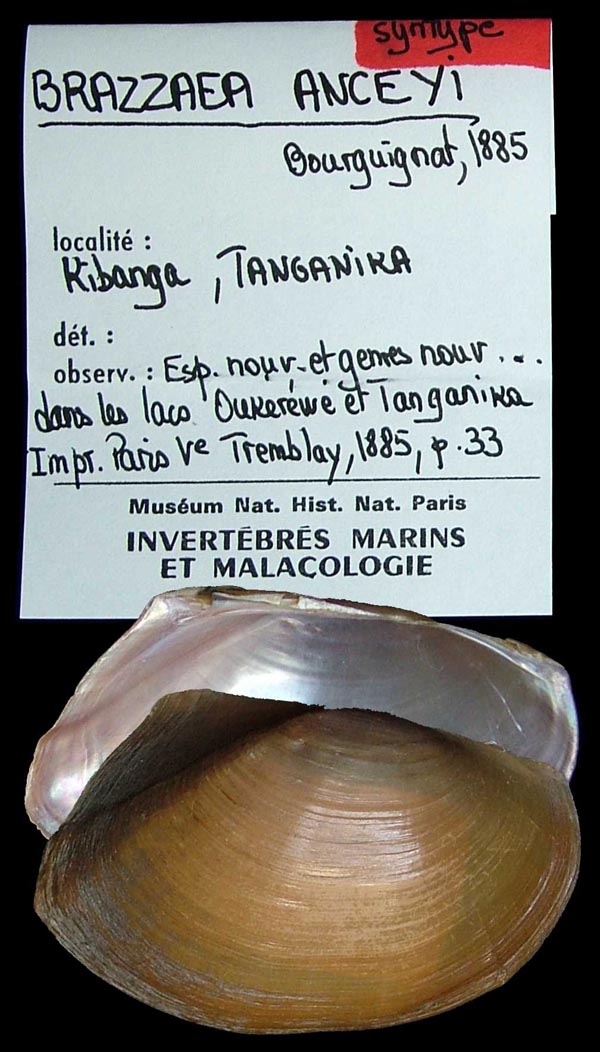 syntype
BRAZZAEA ANCEYi
Bourguignat, 1885
localité :
Kibanga, TANGANiKA
dét. :
observ. : Esp. nouv. et genres nouv ...
dans les lacs Oukéréwé et Tanganika
Impr. Paris Ve Tremblay, 1885, p. 33
Muséum Nat. Hist. Nat. Paris
INVERTÉBRÉS MARINS
ET MALACOLOGIE